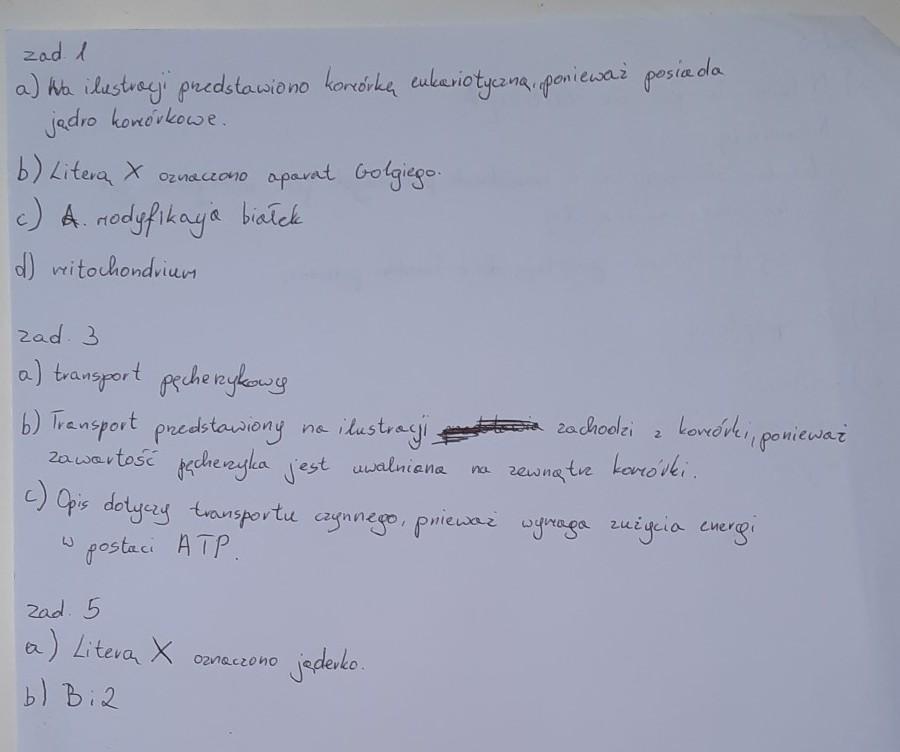 zad. 1
a) Na ilustracji przedstawiono komórkę eukariotyczną, ponieważ posiada
jądro komórkowe.
b) Literą X oznaczono aparat Golgiego.
c) A. modyfikacja białek
d) mitochondrium
zad. 3
a) transport pęcherzykowy
b) Transport przedstawiony na ilustracji zachodzi z komórki, ponieważ
zawartość pęcherzyka jest uwalniana na zewnątrz komórki.
c) Opis dotyczy transportu czynnego, pnieważ wymaga zużycia energi
w postaci ATP.
zad. 5
a) Literą X oznaczono jąderko.
b) B i 2